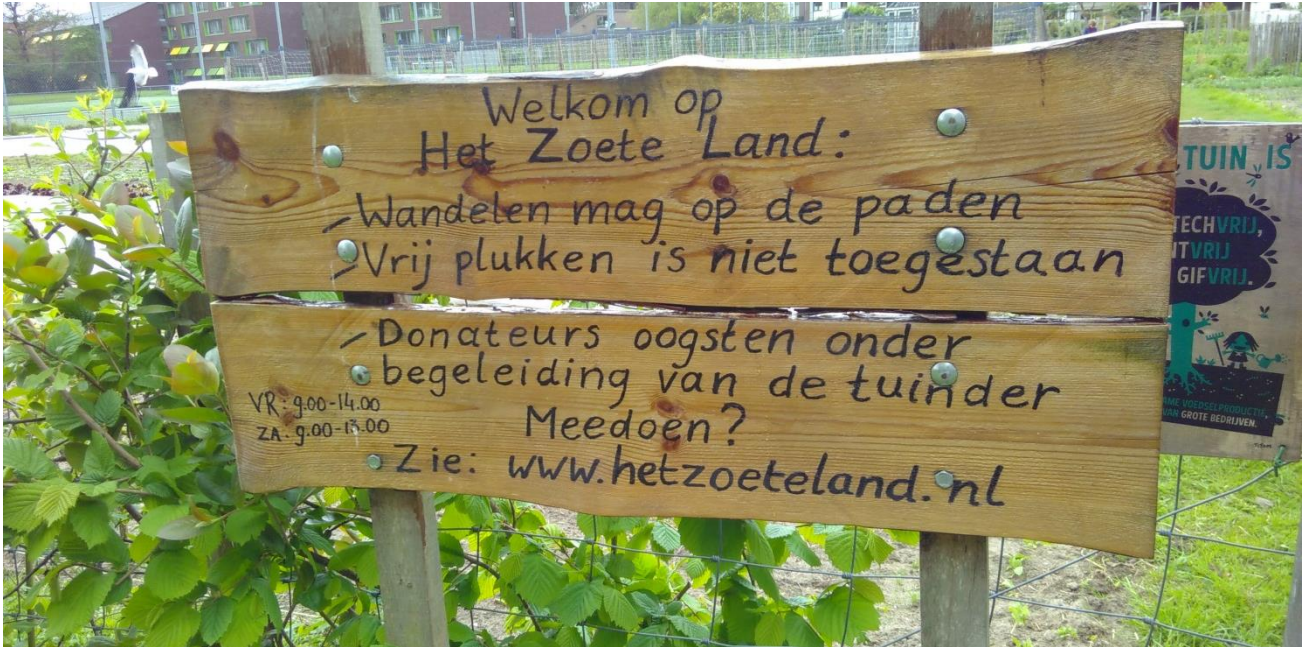 Welkom op
Het Zoete Land:
- Wandelen mag op de paden
- Vrij plukken is niet toegestaan
- Donateurs oogsten onder
begeleiding van de tuinder
VR: 9.00-14.00
ZA: 9.00-13.00
Meedoen?
Zie: www.hetzoeteland.nl
TUIN IS
TECHVRIJ,
NTVRIJ
GIFVRIJ.
AME VOEDSELPRODUCTIE,
VAN GROTE BEDRIJVEN.